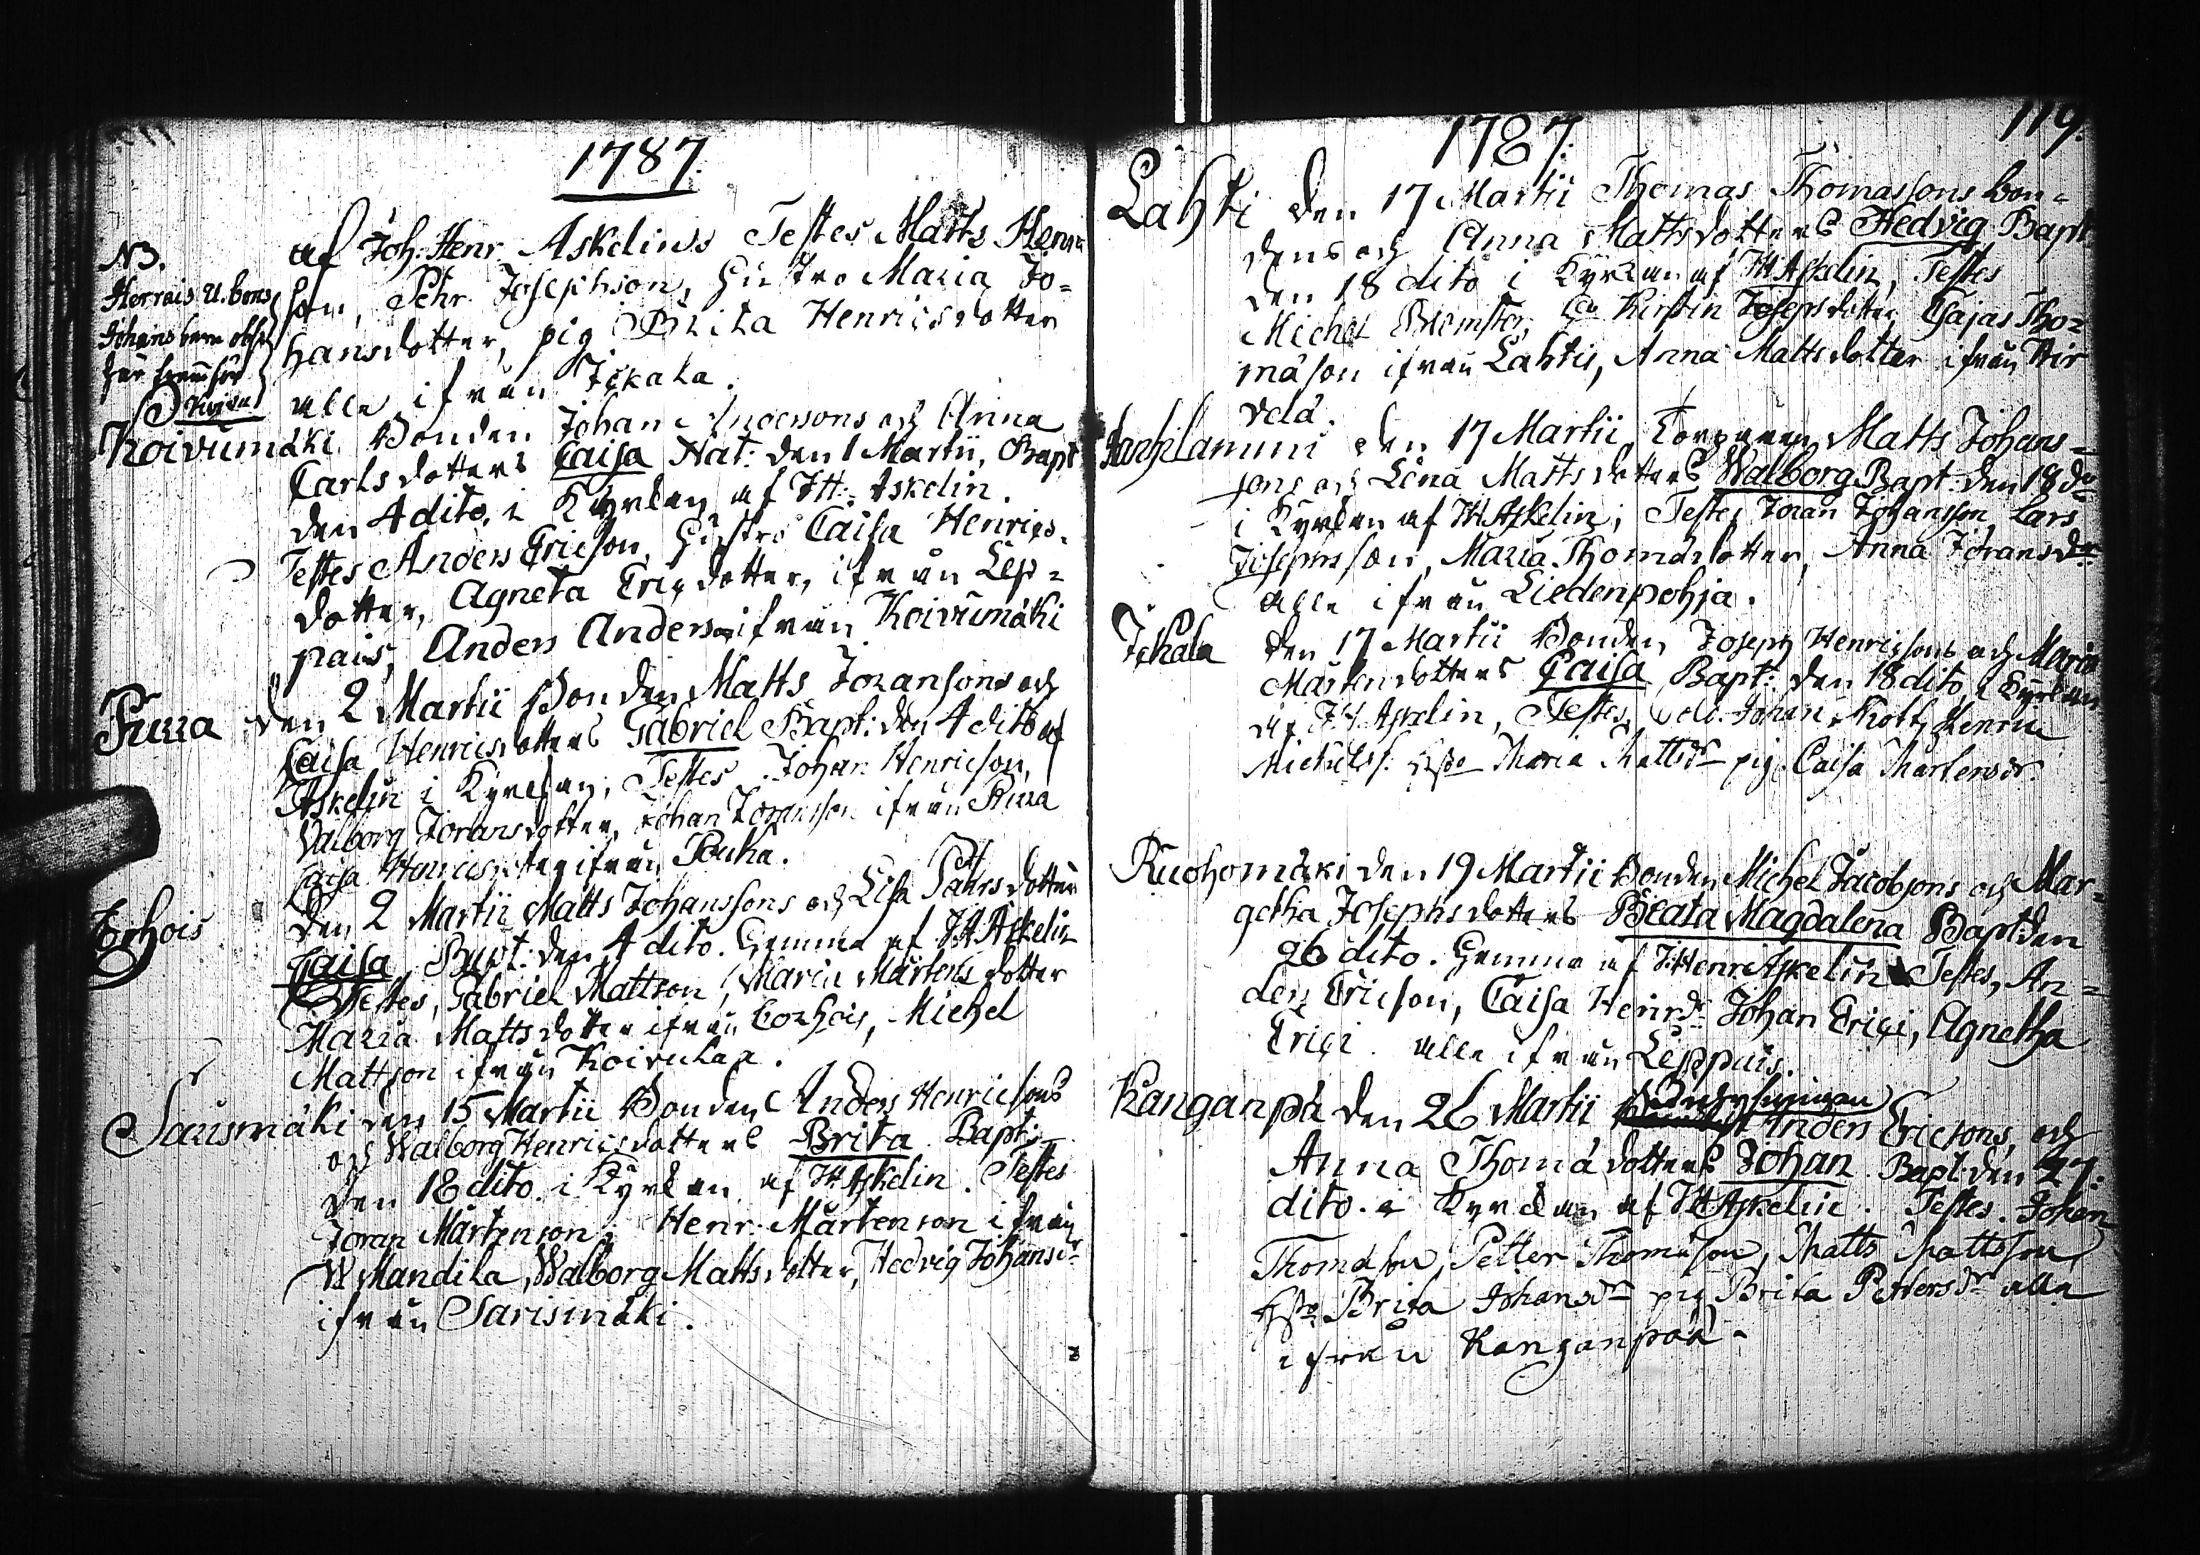 1787.
af Joh: Henr Askelin Testes Matts Henric
son, Pehr Josephson, hustro Maria Jo=
hansdotter, pig Brita Henricsdotter
alle ifrån Jskala.
NB.
Herrois U. bons
Johans barn
här framför
Koivumäki Bonden Johan Anderssons och Anna
Carlsdotters Caisa Nat: den 1 Martii, Bapt
den 4 dito, i Kyrkan af JH: Askelin.
Testes Anders Ericson, hustro Caisa Henrics
dotter, Agneta Ericsdotter, ifrån Lep=
pais, Anders Anderson ifrån Koivumäki
Pura den 2 Martii Bonden Matts Joransons och
Caisa Henricsdotters Gabriel Bapt: den 4 dito af
Askelin i Kyrckan, Testes Johan Henricson,
Valborg Joransdotter, Johan Joransson ifrån Pura
Caisa Henricsdotter ifrån Pouha.
den 2 Martii Matts Johanssons och Lisa Pährsdotters
Caisa Bapt: den 4 dito. hemma af JH Askelin
Testes, Gabriel Mattson, Maria Mårtensdotter
Maria Mattsdotter ifrån Corhois, Michel
Mattson ifrån Koivulax.
Sarismäki den 15 Martii Bonden Anders Henricsons
och Walborg Henricsdotters Brita Bapt:
den 18 dito. i Kyrkan af JH Askelin. Testes
Joran Mårtenson, Henr: Mårtenson ifrån
W Mandila, Walborg Mattsdotter, Hedvig Johansdr
ifrån Sarismäki.
1787.
119.
Lahti den 17 Martii Thomas Thomassons bon=
dens och Anna Mattsdotters Hedvig Bapt
den 18 dito i Kyrkan af JH Askelin, Testes
Michel Blomster, Kirstin Josepsdotter, Esajas Tho=
mäson ifrån Lahtis, Anna Mattsdotter ifrån Hir
velä.
den 17 Martii Torparen Matts Johans=
sons och Lena Mattsdotters Walborg Bapt: den 18 do
i Kyrkan af JH Askelin, Testes Joran Johansson, Lars
Josephsson, Maria Thomädotter, Anna Joransdr
alle ifrån Liedenpohja.
Jskala den 17 Martii Bonden Joseph Henricsons och Maria
Mårtensdotters Caisa Bapt: den 18 dito, i Kyrkan
af JH Askelin, Testes, Johan Henric
Michelss. hustro Maria Mattsdr pig Caisa Mårtensdr.
Ruohomäki den 19 Martii Bonden Michel Jacobsons och Mar=
getha Josephsdotters Beata Magdalena Bapt den
26 dito. hemma af J: Henr Askelin Testes, An=
ders Ericson, Caisa Henrdr Johan Erici, Agnetha
Erici alle ifrån Leppais.
Kanganpä den 26 Martii Anders Ericsons, och
Anna Thomädotters Johan Bapt: den 27.
dito. i Kyrckan af JH Askelin. Testes. Johan
Thomäson, Petter Thomäson, Matts Mattsson
Brita Johansdr pig Brita Pettersdr alla
ifrån Kanganpää.